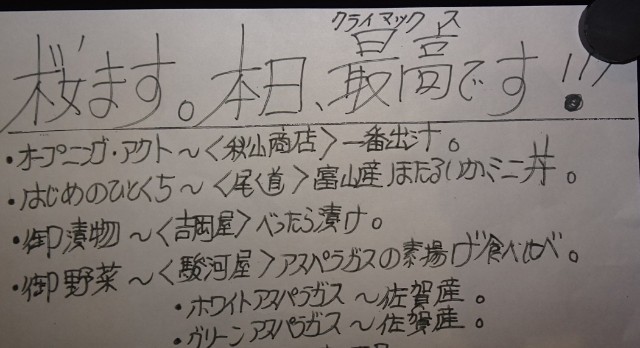 クライマックス
桜ます。本日、最高です!!!
・オープニング・アクト～〈秋山商店〉一番出汁。
・はじめのひとくち～〈尾道〉富山産ほたるいかミニ丼。
・御漬物～〈吉岡屋〉べったら漬け。
・御野菜～〈駿河屋〉アスパラガスの素揚げ食べ比べ。
・ホワイトアスパラガス～佐賀産。
・グリーンアスパラガス～佐賀産。